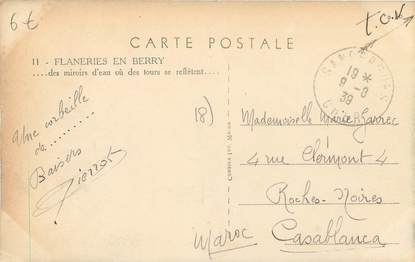 6€
t.c.v
CARTE POSTALE
11 - FLANERIES EN BERRY
....des miroirs d'eau où des tours se reflètent....
19 *
9 - 8
39
18)
Une corbeille
de..........
Baisers
Pierrot
Mademoiselle Marie
4 rue Clermont 4
Roches-Noires
Maroc
Casablanca